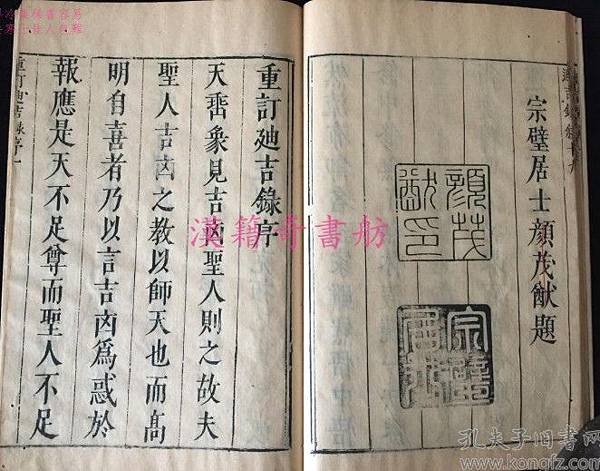 宗璧居士顏茂猷題
顏茂
猷印
宗璧
居士
重訂廸吉錄序
天埀象見吉㐫聖人則之故夫
聖人吉㐫之教以師天也而高
明自喜者乃以言吉㐫爲惑於
報應是天不足尊而聖人不足
重訂廸吉錄序一
漢籍奇書舫
孔夫子旧书网
www.kongfz.com